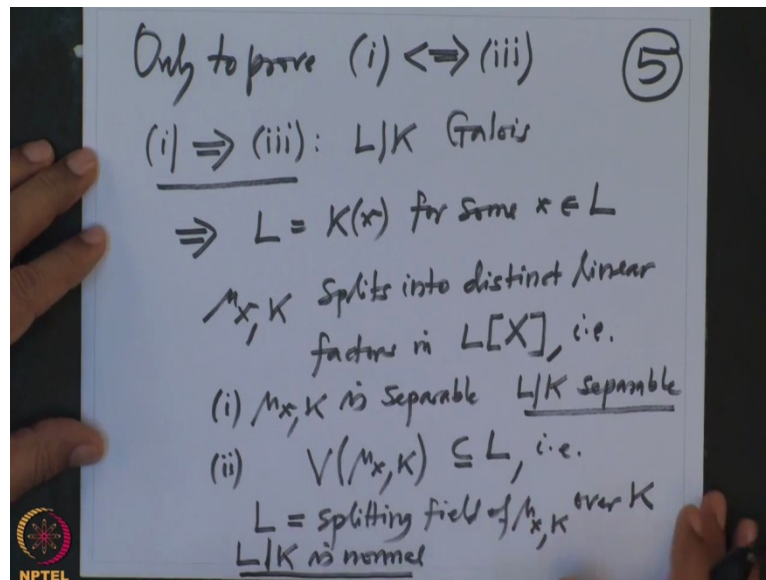 Only to prove (i) <=> (iii)
⑤
(i) => (iii): L|K Galois
=> L = K(x) for some x ∈ L
μ_{x,K} splits into distinct linear
factors in L[X], i.e.
(i) μ_{x,K} is separable L|K separable
(ii) V(μ_{x,K}) ⊆ L, i.e.
L = splitting field of μ_{x,K} over K
L|K is normal
NPTEL